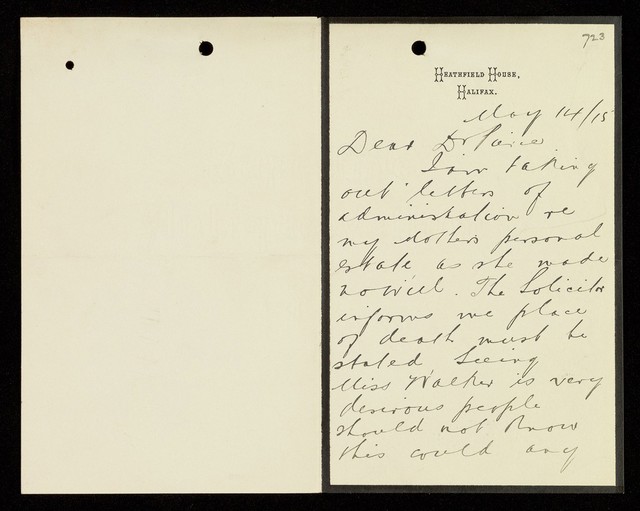 723
HEATHFIELD HOUSE,
HALIFAX.
May 14/15
Dear Dr Pierce
I am taking
out letters of
administration re
my Mothers personal
Estate as she made
no Will. The Solicitor
informs me place
of death must be
stated Seeing
Miss Walker is very
desirous people
should not know
this could any